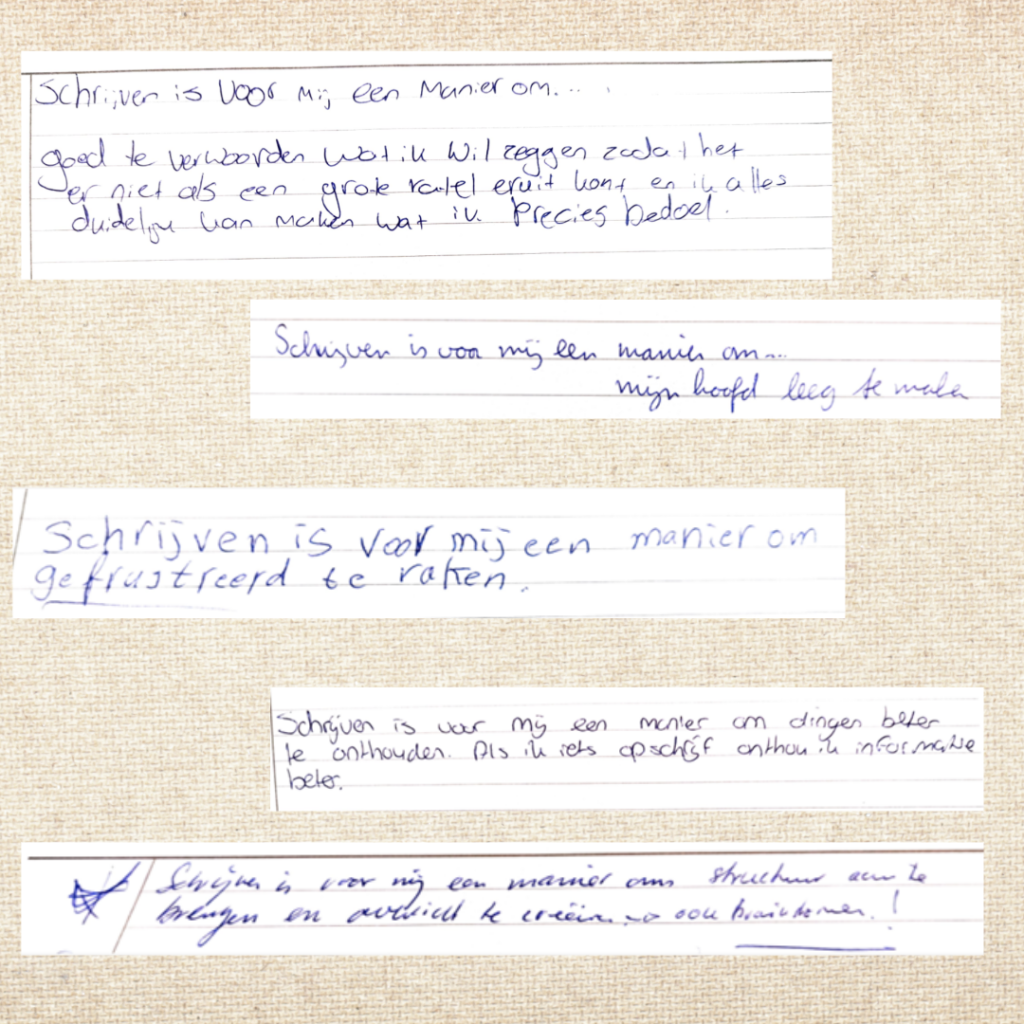 Schrijven is voor mij een manier om....
goed te verwoorden wat ik wil zeggen zodat het
er niet als een grote ratel eruit komt en ik alles
duidelijk kan maken wat ik precies bedoel.
Schrijven is voor mij een manier om...
mijn hoofd leeg te maken
Schrijven is voor mij een manier om
gefrustreerd te raken.
Schrijven is voor mij een manier om dingen beter
te onthouden. Als ik iets opschrijf onthou ik informatie
beter.
Schrijven is voor mij een manier om structuur aan te
brengen en overzicht te creëren → ook brainstormen!